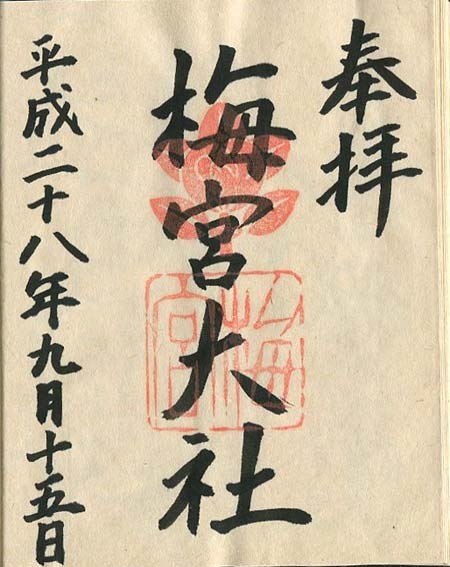 奉拝
梅宮大社
平成二十八年九月十五日
梅宮